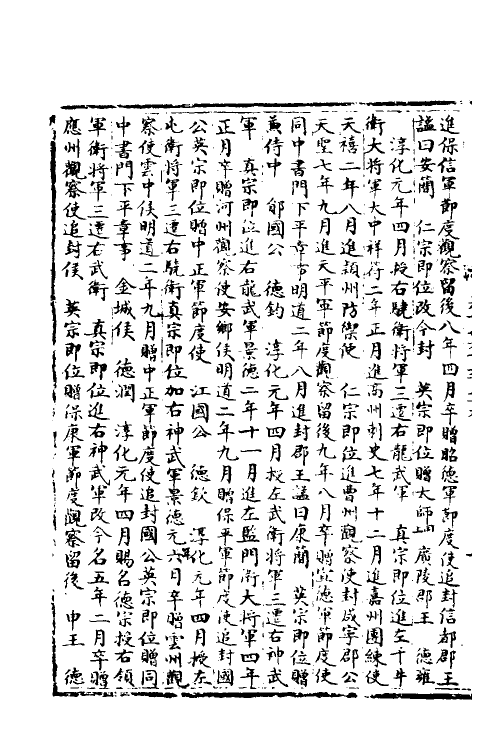 進保信軍節度觀察留後八年四月卒贈昭德軍節度使追封信都郡王
謚曰安簡　仁宗即位改今封　英宗即位贈太師　廣陵郡王　德雍
淳化元年四月授右驍衛將軍三遷右龍武軍　真宗即位進左千牛
衛大將軍大中祥符二年正月進高州刺史七年十二月進嘉州團練使
天禧二年八月進潁州防禦使　仁宗即位進曹州觀察使封咸寧郡公
天聖七年九月進天平軍節度觀察留後九年八月卒贈宣德軍節度使
同中書門下平章事明道二年八月進封郡王謚曰康簡　英宗即位贈
兼侍中　鄆國公　德鈞　淳化元年四月授左武衛將軍三遷右神武
軍　真宗即位進右龍武軍景德二年十一月進左監門衛大將軍四年
正月卒贈河州觀察使安鄉侯明道二年九月贈保平軍節度使追封國
公英宗即位贈中正軍節度使　江國公　德欽　淳化元年四月授左
屯衛將軍三遷右驍衛真宗即位加右神武軍景德元六月卒贈雲州觀
察使雲中侯明道二年九月贈中正軍節度使追封國公英宗即位贈同
中書門下平章事　金城侯　德潤　淳化元年四月賜名德宗授右領
軍衛將軍三遷右武衛　真宗即位進右神武軍改今名五年二月卒贈
應州觀察使追封侯　英宗即位贈保康軍節度觀察留後　申王　德